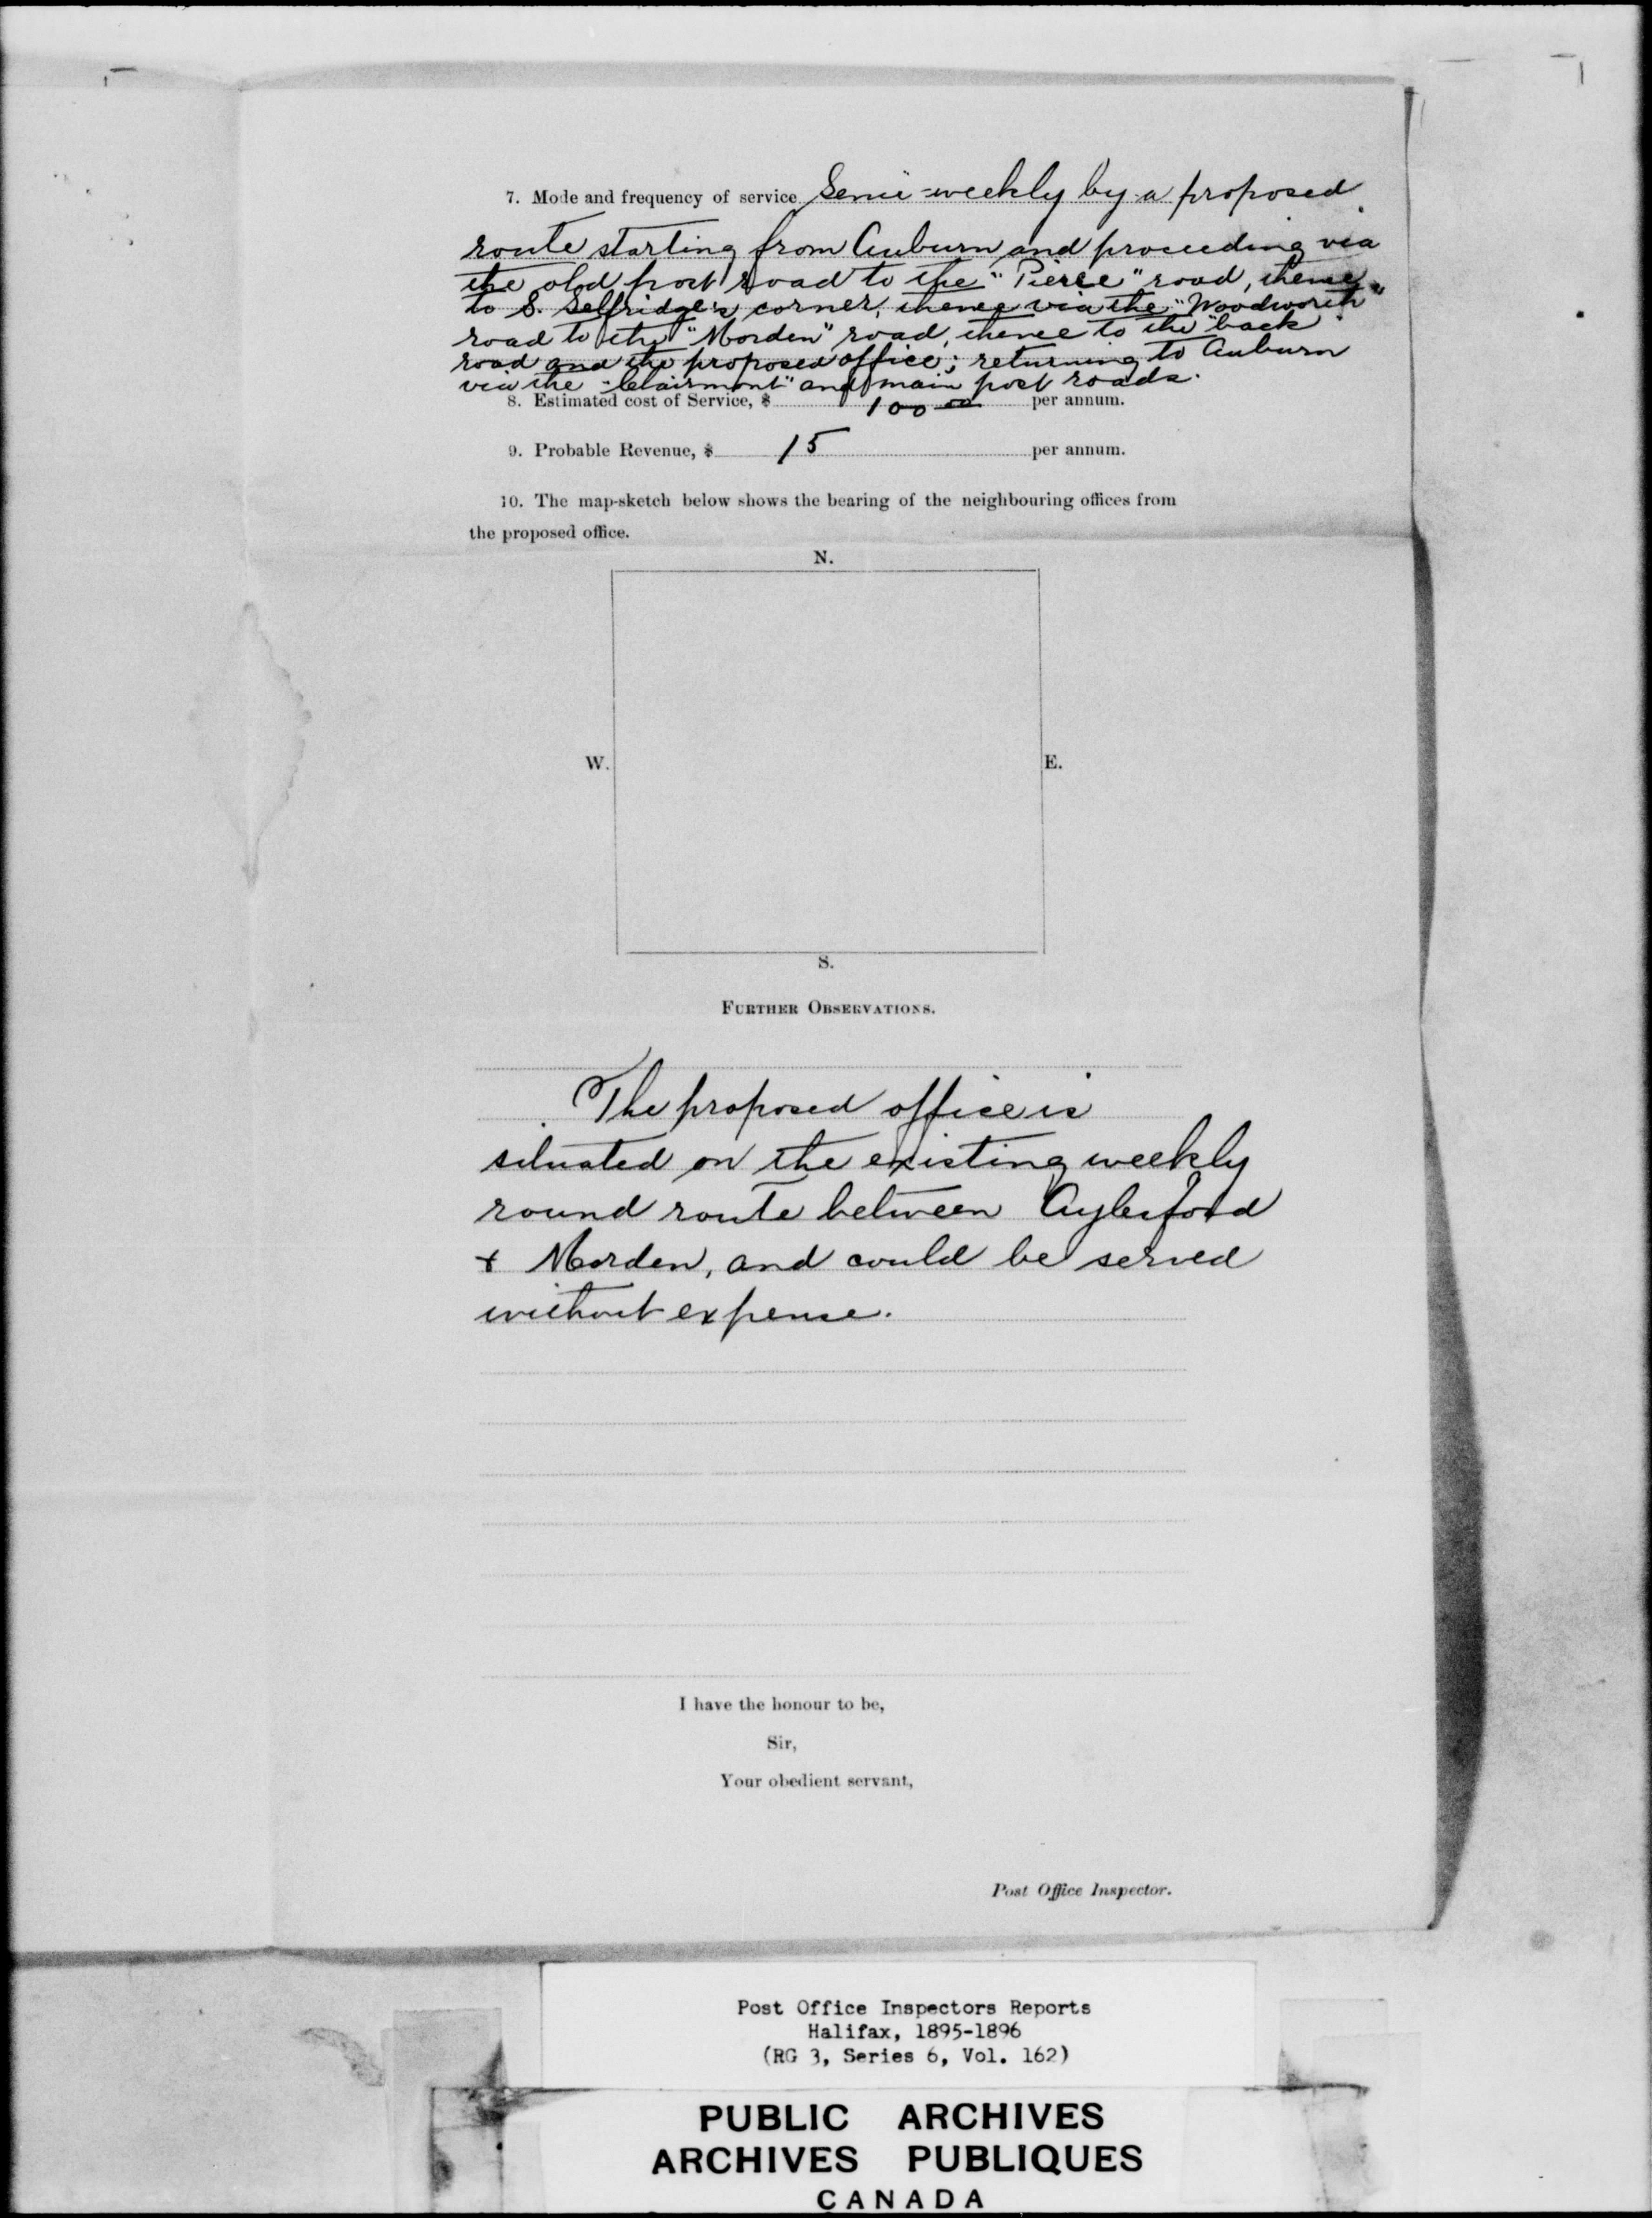 7. Mode and frequency of service Semi-weekly by a proposed
route starting from Auburn and proceeding via
the old post road to the "Pierce" road, thence
to S. Selfridge's corner, thence via the "Woodworth"
road to the "Morden" road, thence to the "back"
road and the proposed office; returning to Auburn
via the "Clairmont" and main post roads.
8. Estimated cost of Service, $ 100.00 per annum.
9. Probable Revenue, $ 15 per annum.
10. The map-sketch below shows the bearing of the neighbouring offices from
the proposed office.
N.
W. E.
S.
FURTHER OBSERVATIONS.
The proposed office is
situated on the existing weekly
round route between Aylesford
+ Morden, and could be served
without expense.
I have the honour to be,
Sir,
Your obedient servant,
Post Office Inspector.
Post Office Inspectors Reports
Halifax, 1895-1896
(RG 3, Series 6, Vol. 162)
PUBLIC ARCHIVES
ARCHIVES PUBLIQUES
CANADA